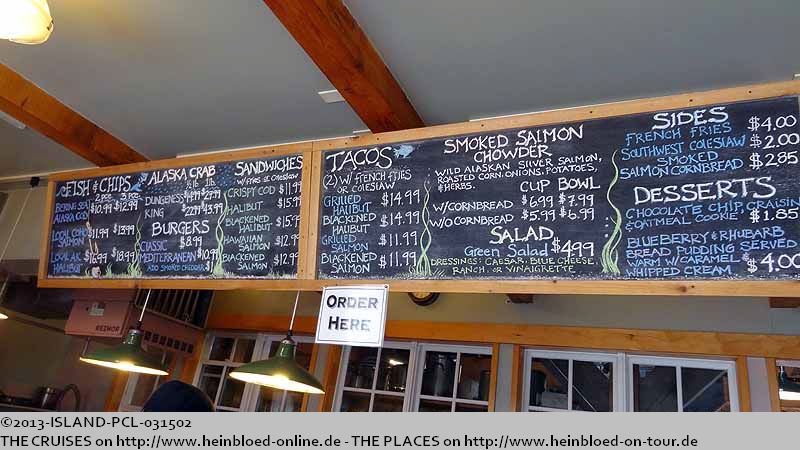 FISH & CHIPS
2 PCS 3 PCS
BERING SEA
ALASKA COD $10.99 $12.99
LOCAL COHO
SALMON $11.99 $13.99
LOCAL AK
HALIBUT $16.99 $18.99
ALASKA CRAB
½ lb 1 lb
DUNGENESS
KING 22.99 43.99
BURGERS
CLASSIC $8.99
MEDITERRANEAN $10.99
ADD SMOKED CHEDDAR
SANDWICHES
W/ FRIES or COLESLAW
CRISPY COD $11.99
HALIBUT $15.99
BLACKENED
HALIBUT $15.99
HAWAIIAN
SALMON $12.99
BLACKENED
SALMON $12.99
TACOS
(2) W/ FRENCH FRIES
OR COLESLAW
GRILLED
HALIBUT $14.99
BLACKENED
HALIBUT $14.99
GRILLED
SALMON $11.99
BLACKENED
SALMON $11.99
SMOKED SALMON
CHOWDER
WILD ALASKAN SILVER SALMON,
ROASTED CORN, ONIONS, POTATOES,
& HERBS.
CUP BOWL
W/CORNBREAD $6.99 $7.99
W/O CORNBREAD $5.99 $6.99
SALAD
Green Salad $4.99
DRESSINGS: CAESAR, BLUE CHEESE
RANCH, OR VINAIGRETTE
SIDES
FRENCH FRIES $4.00
SOUTHWEST COLESLAW $2.00
SMOKED
SALMON CORNBREAD $2.85
DESSERTS
CHOCOLATE CHIP CRAISIN
& OATMEAL COOKIE $1.85
BLUEBERRY & RHUBARB
BREAD PUDDING SERVED
WARM W/ CARAMEL $4.00
WHIPPED CREAM
ORDER
HERE
REZNOR
©2013-ISLAND-PCL-031502
THE CRUISES on http://www.heinbloed-online.de - THE PLACES on http://www.heinbloed-on-tour.de